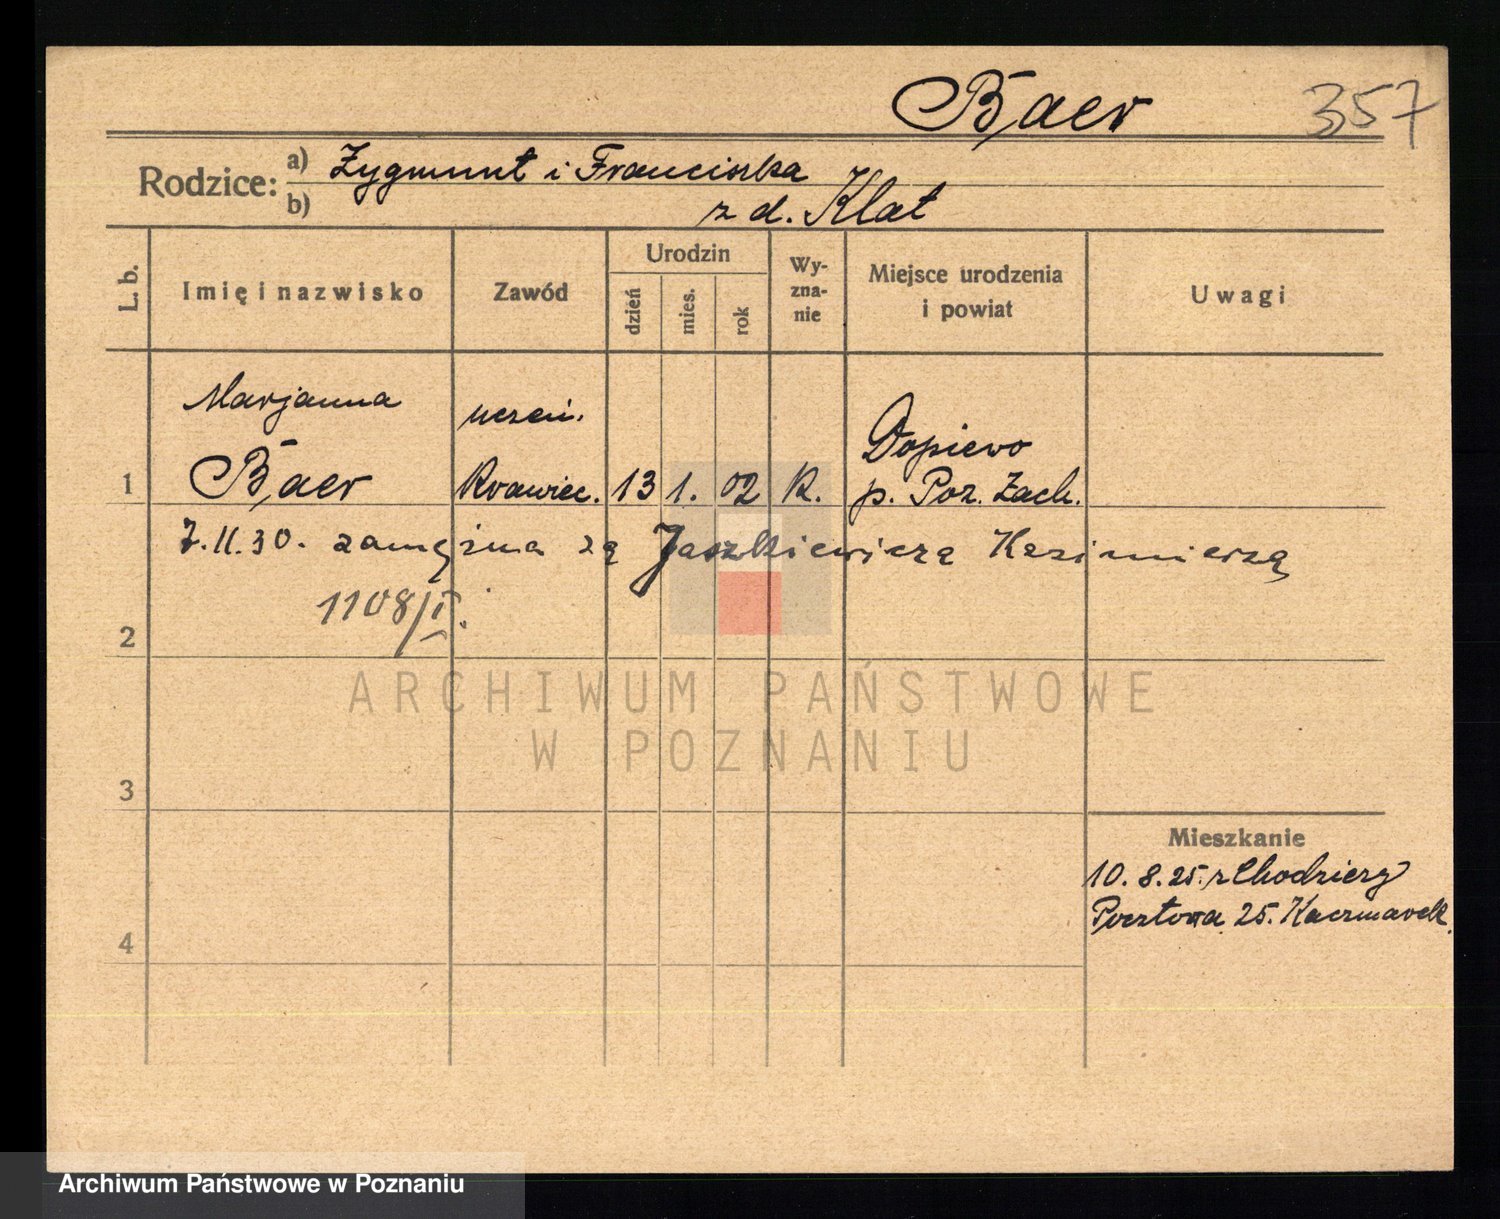 Baer 357
Rodzice: a) Zygmunt i Franciszka
b) z d. Klat
L. b. Imię i nazwisko Zawód Urodzin dzień mies. rok Wyzna-nie Miejsce urodzenia i powiat Uwagi
Marjanna uczen. Dopiewo
1 Baer Krawiec. 13 1. 02 K. p. Poz. Zach.
7.II.30. zamężna zą Jaszkiewiczą Kazimierzą
1108/I.
2
ARCHIWUM PAŃSTWOWE
W POZNANIU
3
Mieszkanie
10.8.25. z Chodzieży
4 Pocztowa 25. Kaczmarek.
Archiwum Państwowe w Poznaniu